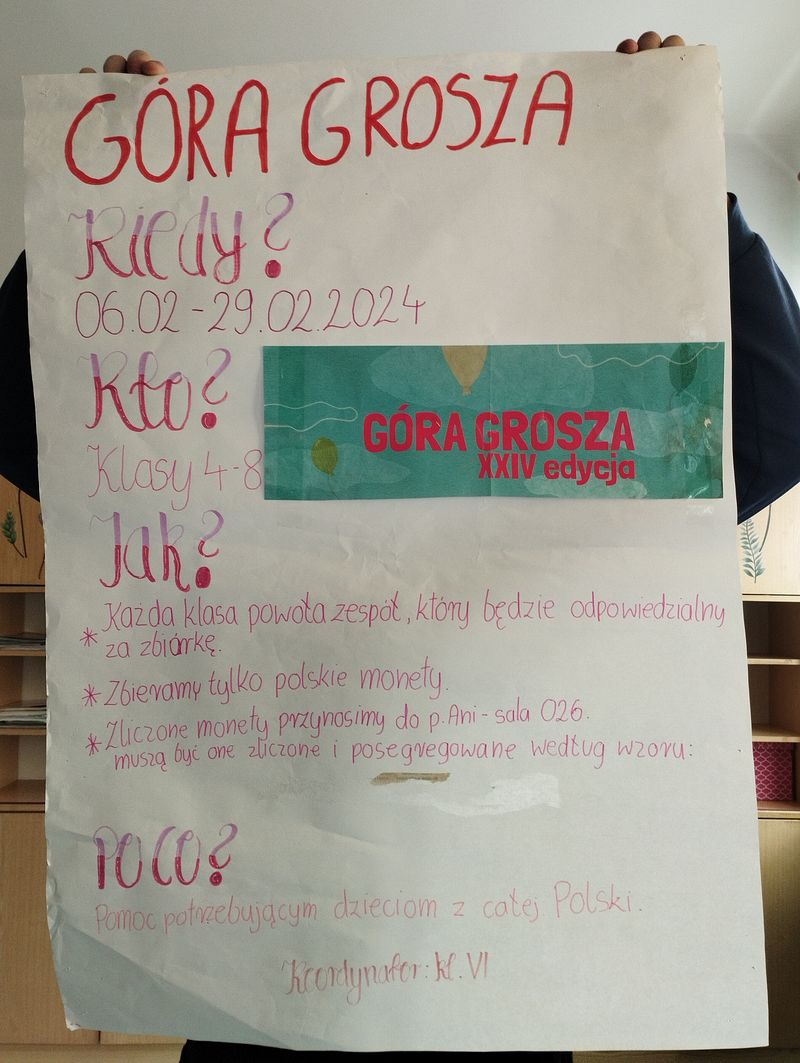 GÓRA GROSZA
Kiedy?
06.02-29.02.2024
Kto?
GÓRA GROSZA
XXIV edycja
Klasy 4-8
Jak?
* Każda klasa powoła zespół, który będzie odpowiedzialny
za zbiórkę.
* Zbieramy tylko polskie monety.
* Zliczone monety przynosimy do p.Ani - sala 026.
muszą być one zliczone i posegregowane według wzoru:
PO CO?
Pomoc potrzebującym dzieciom z całej Polski.
Koordynator: kl. VI